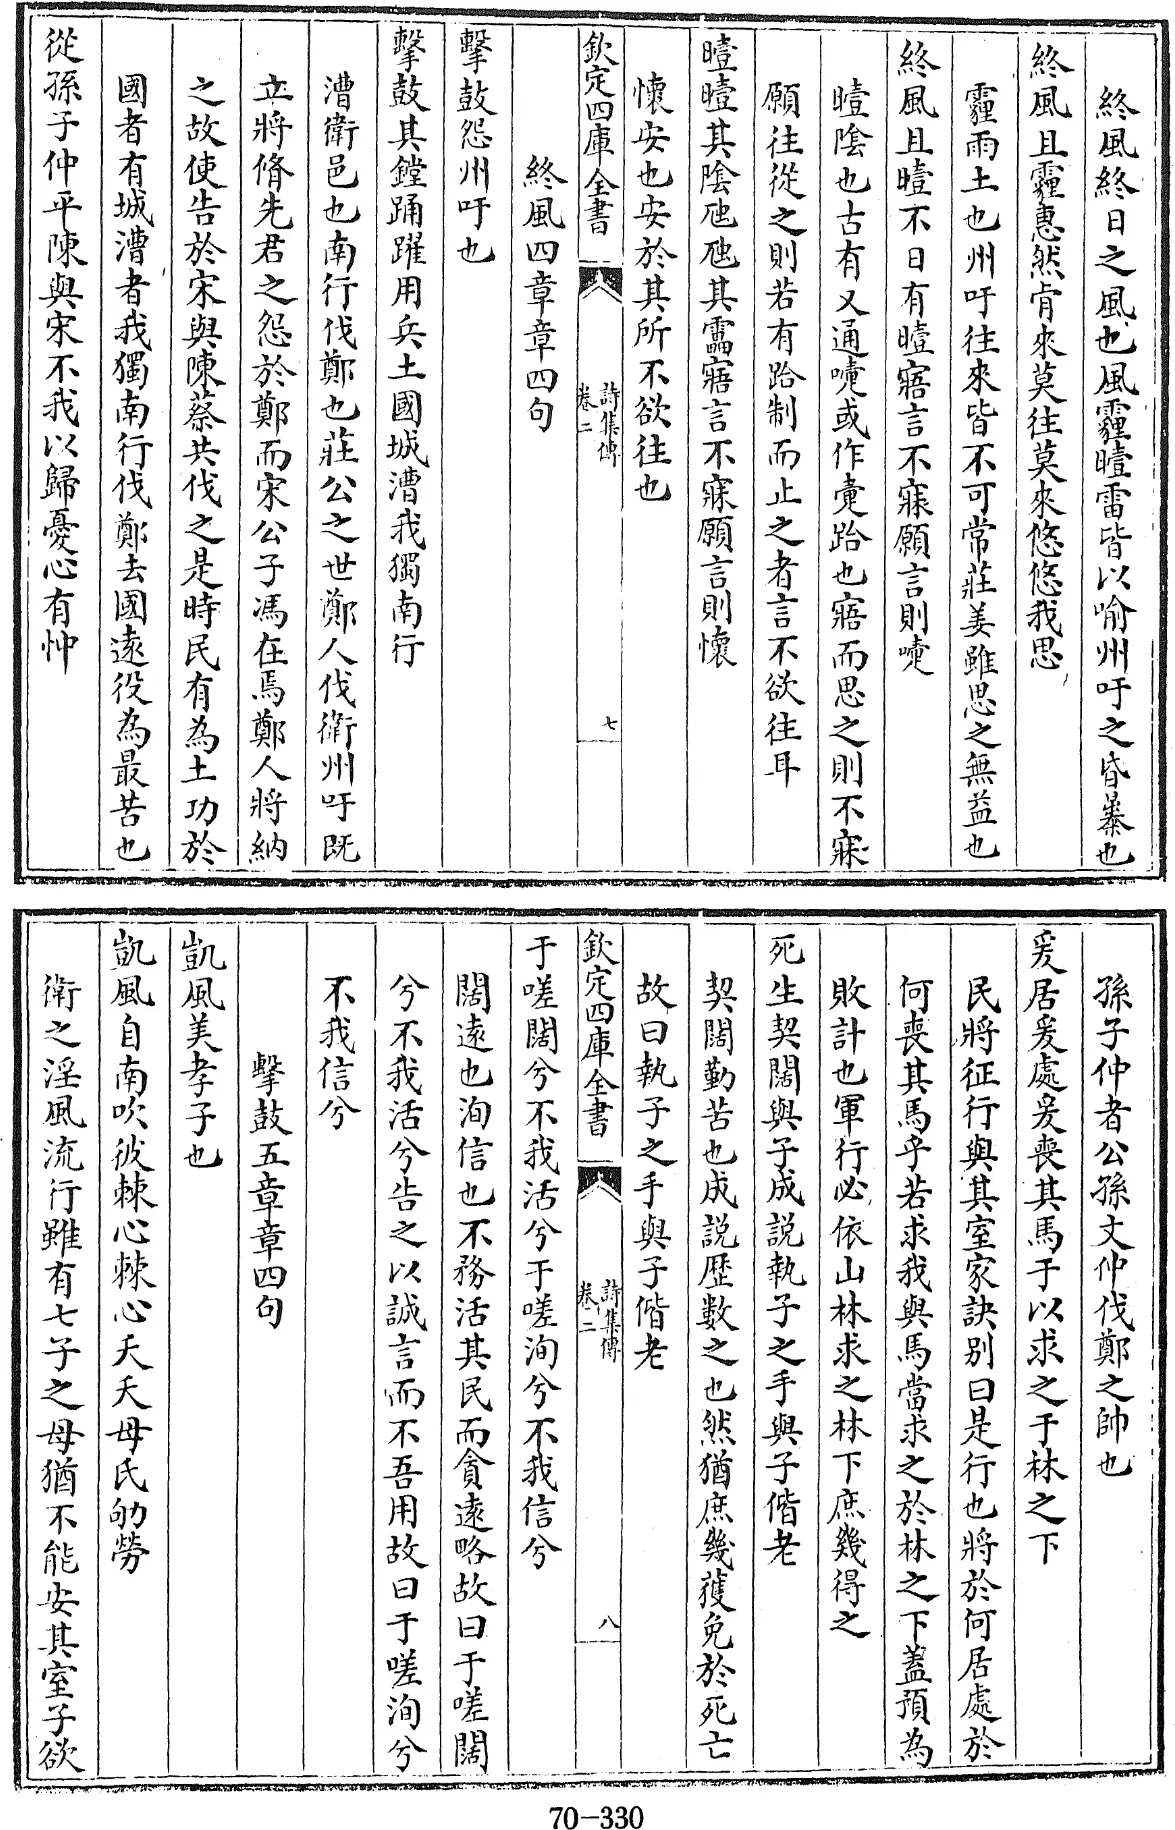 終風終日之風也風霾曀雷皆以喻州吁之昏暴也
終風且霾惠然肯來莫往莫來悠悠我思
霾雨土也州吁往來皆不可常莊姜雖思之無益也
終風且曀不日有曀寤言不寐願言則嚏
曀陰也古有又通嚏或作疐跲也寤而思之則不寐
願往從之則若有跲制而止之者言不欲往耳
曀曀其陰虺虺其靁寤言不寐願言則懷
懷安也安於其所不欲往也
欽定四庫全書
詩集傳
卷二
七
終風四章章四句
擊鼓怨州吁也
擊鼓其鏜踊躍用兵土國城漕我獨南行
漕衛邑也南行伐鄭也莊公之世鄭人伐衛州吁既
立將脩先君之怨於鄭而宋公子馮在焉鄭人將納
之故使告於宋與陳蔡共伐之是時民有為土功於
國者有城漕者我獨南行伐鄭去國遠役為最苦也
從孫子仲平陳與宋不我以歸憂心有忡
孫子仲者公孫文仲伐鄭之帥也
爰居爰處爰喪其馬于以求之于林之下
民將征行與其室家訣别曰是行也將於何居處於
何喪其馬乎若求我與馬當求之於林之下蓋預為
敗計也軍行必依山林求之林下庶幾得之
死生契闊與子成説執子之手與子偕老
契闊勤苦也成説歴數之也然猶庶幾獲免於死亡
故曰執子之手與子偕老
欽定四庫全書
詩集傳
卷二
八
于嗟闊兮不我活兮于嗟洵兮不我信兮
闊遠也洵信也不務活其民而貪遠略故曰于嗟闊
兮不我活兮告之以誠言而不吾用故曰于嗟洵兮
不我信兮
擊鼓五章章四句
凱風美孝子也
凱風自南吹彼棘心棘心夭夭母氏劬勞
衛之淫風流行雖有七子之母猶不能安其室子欲
70-330